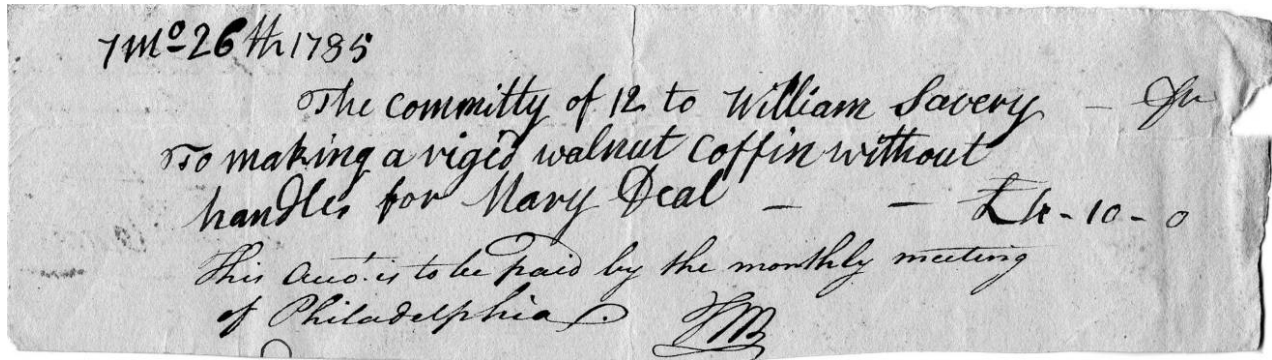 7 Mo 26th 1785
The committy of 12 to William Savery - Dr
To making a rigid walnut coffin without
handles for Mary Deal - - £4-10-0
This Acco.t is to be paid by the monthly meeting
of Philadelphia